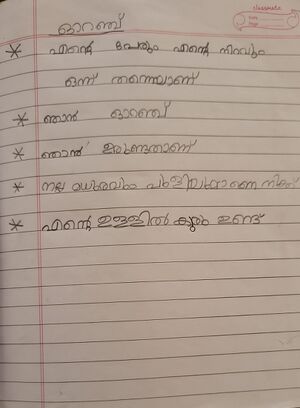 classmate
Date
Page
ഓറഞ്ച്
* എന്റെ പേരും എന്റെ നിറവും
ഒന്ന് തന്നെയാണ്
* ഞാൻ ഓറഞ്ച്
* ഞാൻ ഉരുണ്ടതാണ്
* നല്ല മധുരവും പുളിയുമാണെ നിക്ക്
* എന്റെ ഉള്ളിൽ കുരു ഉണ്ട്